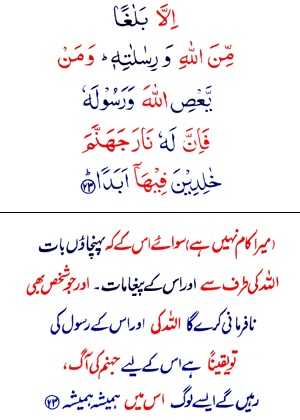 اِلَّا بَلٰغًا
مِّنَ اللّٰهِ وَ رِسٰلٰتِهٖ ؕ وَ مَنْ
يَّعْصِ اللّٰهَ وَ رَسُوْلَهٗ
فَاِنَّ لَهٗ نَارَ جَهَنَّمَ
خٰلِدِيْنَ فِيْهَاۤ اَبَدًا ؕ ﴿۲۳﴾
(میرا کام نہیں ہے) سوائے اس کے کہ پہنچاؤں بات
اللہ کی طرف سے اور اس کے پیغامات۔ اور جو شخص بھی
نافرمانی کرے گا اللہ کی اور اس کے رسول کی
تو یقیناً ہے اس کے لیے جہنم کی آگ،
رہیں گے ایسے لوگ اس میں ہمیشہ ہمیشہ ﴿۲۳﴾